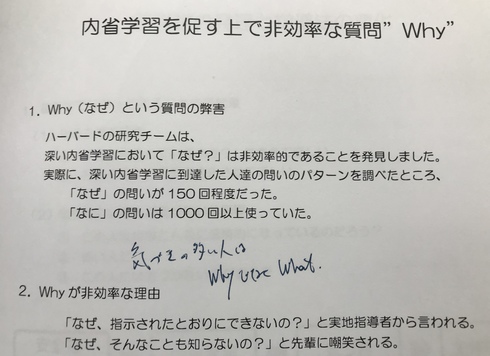 内省学習を促す上で非効率な質問” Why”
1. Why（なぜ）という質問の弊害
ハーバードの研究チームは、
深い内省学習において「なぜ？」は非効率的であることを発見しました。
実際に、深い内省学習に到達した人達の問いのパターンを調べたところ、
「なぜ」の問いが150回程度だった。
「なに」の問いは1000回以上使っていた。
気づきの多い人は
Why より What.
2. Whyが非効率な理由
「なぜ、指示されたとおりにできないの？」と実地指導者から言われる。
「なぜ、そんなことも知らないの？」と先輩に嘲笑される。